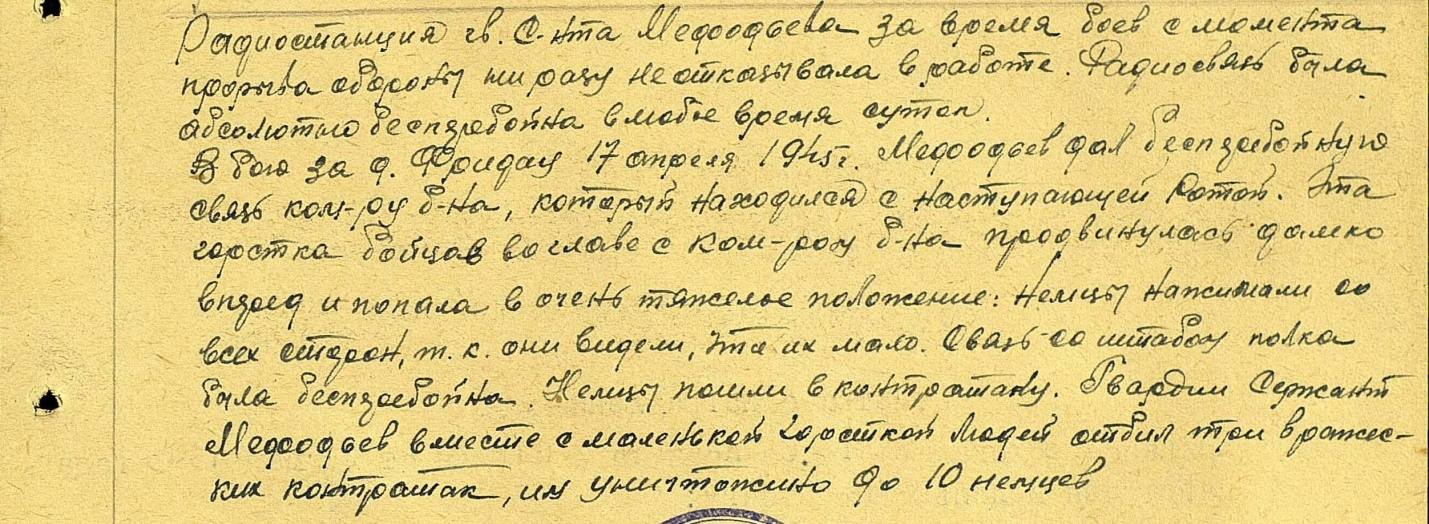 Радиостанция гв. С-нта Мефодьева за время боев с момента
прорыва обороны ни разу не отказывала в работе. Радиосвязь была
абсолютно беспребойна в любое время суток.
В бою за д. Фридау 17 апреля 1945г. Мефодьев дал беспребойную
связь ком-ру б-на, который находился с наступающей ротой. Эта
горстка бойцов во главе с ком-ром б-на продвинулась далеко
вперед и попала в очень тяжелое положение: немцы нажимали со
всех сторон, т.к. они видели, что их мало. Связь со штабом полка
была беспребойна. Немцы пошли в контратаку. Гвардии Сержант
Мефодьев вместе с маленькой горсткой людей отбил три вражес-
ких контратак, им уничтожено до 10 немцев